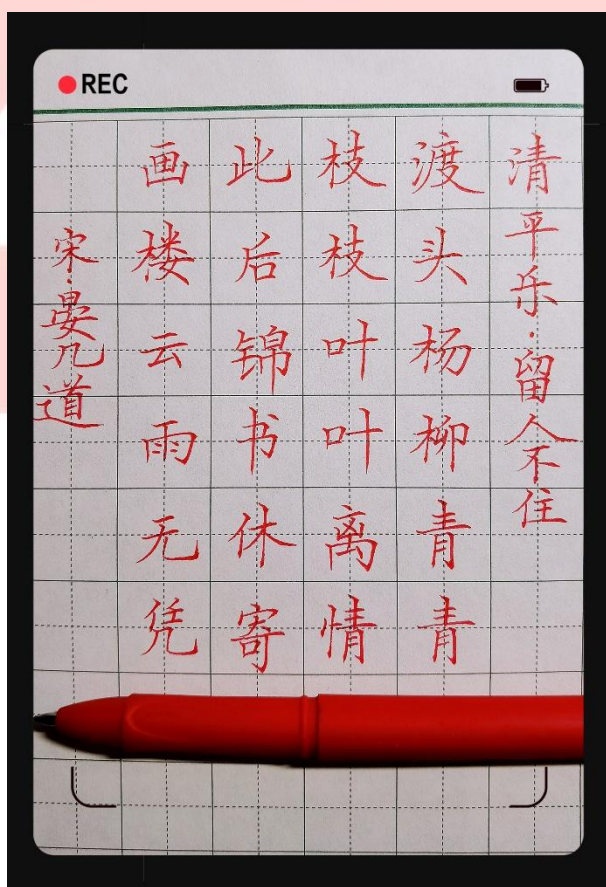 REC
清平乐·留人不住
渡头杨柳青青
枝枝叶叶离情
此后锦书休寄
画楼云雨无凭
宋·晏几道